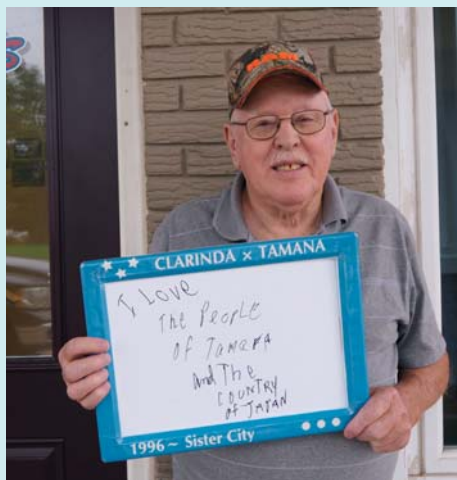 CLARINDA × TAMANA
I LOVE
The People
Of Tamana
and The
COUNTRY
of JAPAN
1996 ~ Sister City